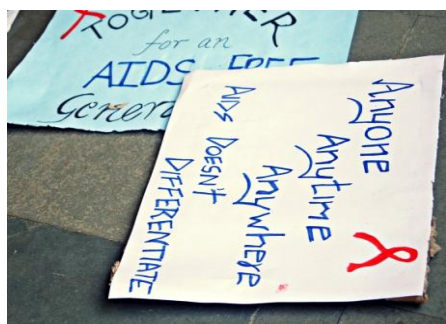 TOGETHER
for an
AIDS FREE
Anyone
Anytime
Anywhere
AIDS DOESN'T
DIFFERENTIATE